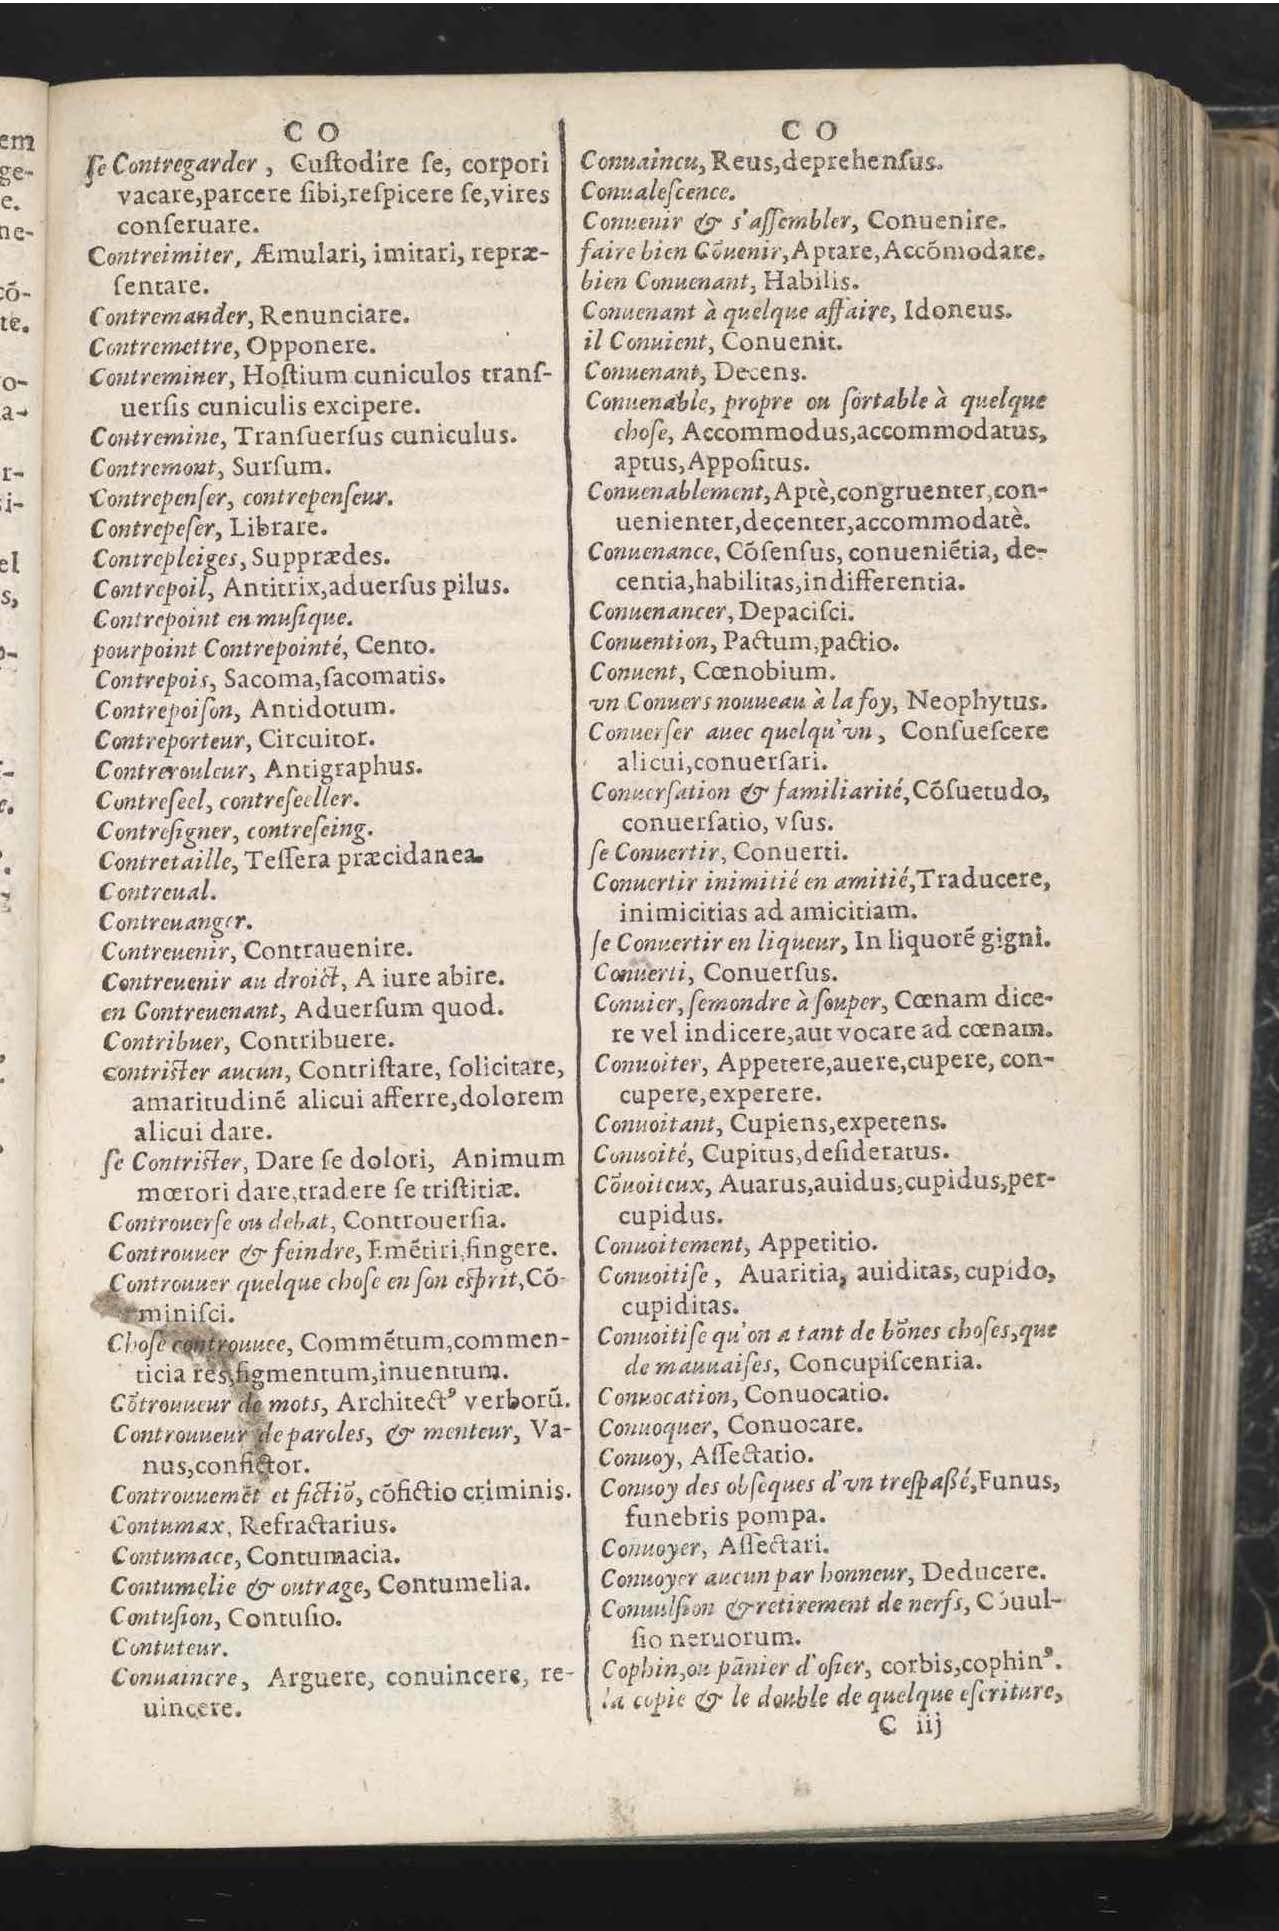 C O
ſe Contregarder, Cuſtodire ſe, corpori
vacare,parcere ſibi,reſpicere ſe,vires
conſeruare.
Contreimiter, Æmulari, imitari, repræ-
ſentare.
Contremander, Renunciare.
Contremettre, Opponere.
Contreminer, Hoſtium cuniculos tranſ-
uerſis cuniculis excipere.
Contremine, Tranſuerſus cuniculus.
Contremont, Surſum.
Contrepenſer, contrepenſeur.
Contrepeſer, Librare.
Contrepleiges, Supprædes.
Contrepoil, Antitrix,aduerſus pilus.
Contrepoint en muſique.
pourpoint Contrepointé, Cento.
Contrepois, Sacoma,ſacomatis.
Contrepoiſon, Antidotum.
Contreporteur, Circuitor.
Contrerouleur, Antigraphus.
Contreſeel, contreſeeller.
Contreſigner, contreſeing.
Contretaille, Teſſera præcidanea.
Contreual.
Contreuanger.
Contreuenir, Contrauenire.
Contreuenir au droict, A iure abire.
en Contreuenant, Aduerſum quod.
Contribuer, Contribuere.
contriſter aucun, Contriſtare, ſolicitare,
amaritudinẽ alicui afferre,dolorem
alicui dare.
ſe Contriſter, Dare ſe dolori, Animum
mœrori dare,tradere ſe triſtitiæ.
Controuerſe ou debat, Controuerſia.
Controuuer & feindre, Emẽtiri,fingere.
Controuuer quelque choſe en ſon eſprit,Cõ-
miniſci.
Choſe controuuee, Commẽtum,commen-
ticia res,figmentum,inuentum.
Cõtrouueur de mots, Architectꝰ verborũ.
Controuueur de paroles, & menteur, Va-
nus,confictor.
Controuuemẽt et fictiõ, cõfictio criminis.
Contumax, Refractarius.
Contumace, Contumacia.
Contumelie & outrage, Contumelia.
Contuſion, Contuſio.
Contuteur.
Conuaincre, Arguere, conuincere, re-
uincere.
C O
Conuaincu, Reus,deprehenſus.
Conualeſcence.
Conuenir & s'aſſembler, Conuenire.
faire bien Cõuenir,Aptare,Accõmodare.
bien Conuenant, Habilis.
Conuenant à quelque affaire, Idoneus.
il Conuient, Conuenit.
Conuenant, Decens.
Conuenable, propre ou ſortable à quelque
choſe, Accommodus,accommodatus,
aptus,Appoſitus.
Conuenablement,Aptè,congruenter,con-
uenienter,decenter,accommodatè.
Conuenance, Cõſenſus, conueniẽtia, de-
centia,habilitas,indifferentia.
Conuenancer, Depaciſci.
Conuention, Pactum,pactio.
Conuent, Cœnobium.
vn Conuers nouueau à la foy, Neophytus.
Conuerſer auec quelqu'vn, Conſueſcere
alicui,conuerſari.
Conuerſation & familiarité,Cõſuetudo,
conuerſatio, vſus.
ſe Conuertir, Conuerti.
Conuertir inimitié en amitié,Traducere,
inimicitias ad amicitiam.
ſe Conuertir en liqueur, In liquorẽ gigni.
Conuerti, Conuerſus.
Conuier, ſemondre à ſouper, Cœnam dice-
re vel indicere,aut vocare ad cœnam.
Conuoiter, Appetere,auere,cupere, con-
cupere,experere.
Conuoitant, Cupiens,expetens.
Conuoité, Cupitus,deſideratus.
Cõuoiteux, Auarus,auidus,cupidus,per-
cupidus.
Conuoitement, Appetitio.
Conuoitiſe, Auaritia, auiditas, cupido,
cupiditas.
Conuoitiſe qu'on a tant de bõnes choſes,que
de mauuaiſes, Concupiſcentia.
Conuocation, Conuocatio.
Conuoquer, Conuocare.
Conuoy, Aſſectatio.
Conuoy des obſeques d'vn treſpaßé,Funus,
funebris pompa.
Conuoyer, Aſſectari.
Conuoyer aucun par honneur, Deducere.
Conuulſion & retirement de nerfs, Cõuul-
ſio neruorum.
Cophin,ou pãnier d'oſier, corbis,cophinꝰ.
la copie & le double de quelque eſcriture,
C iij